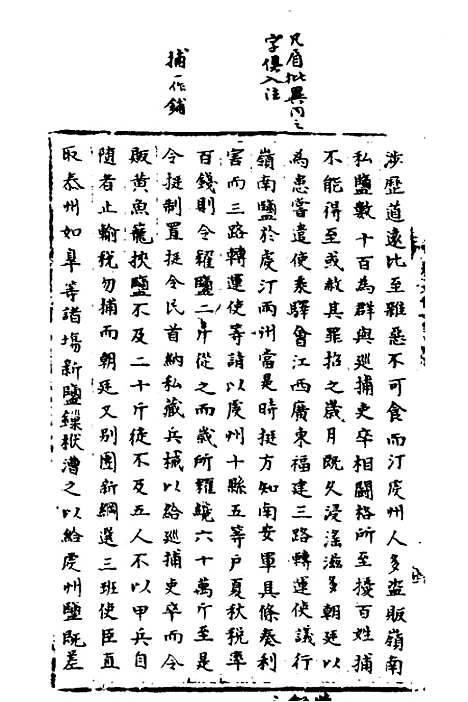 凡眉批異同之
字俱入注
捕一作鋪
涉歷道遠比至雜惡不可食而汀虔州人多盜販嶺南
私鹽數十百為群與巡捕吏卒相鬪格所至擾百姓捕
不能得至或赦其罪招之歲月既久浸淫滋多朝廷以
為患嘗遣使乘驛會江西廣東福建三路轉運使議行
嶺南鹽於虔汀兩州當是時挺方知南安軍具條奏利
害而三路轉運使等請以虔州十縣五等戶夏秋稅率
百錢則令糴鹽二斤從之而歲所糴纔六十萬斤至是
令挺制置挺令民首納私藏兵械以給巡捕吏卒而令
販黃魚籠挾鹽不及二十斤徒不及五人不以甲兵自
隨者止輸稅勿捕而朝廷又別團新綱選三班使臣直
取泰州如皐等諸場新鹽鏁栿漕之以給虔州鹽既差